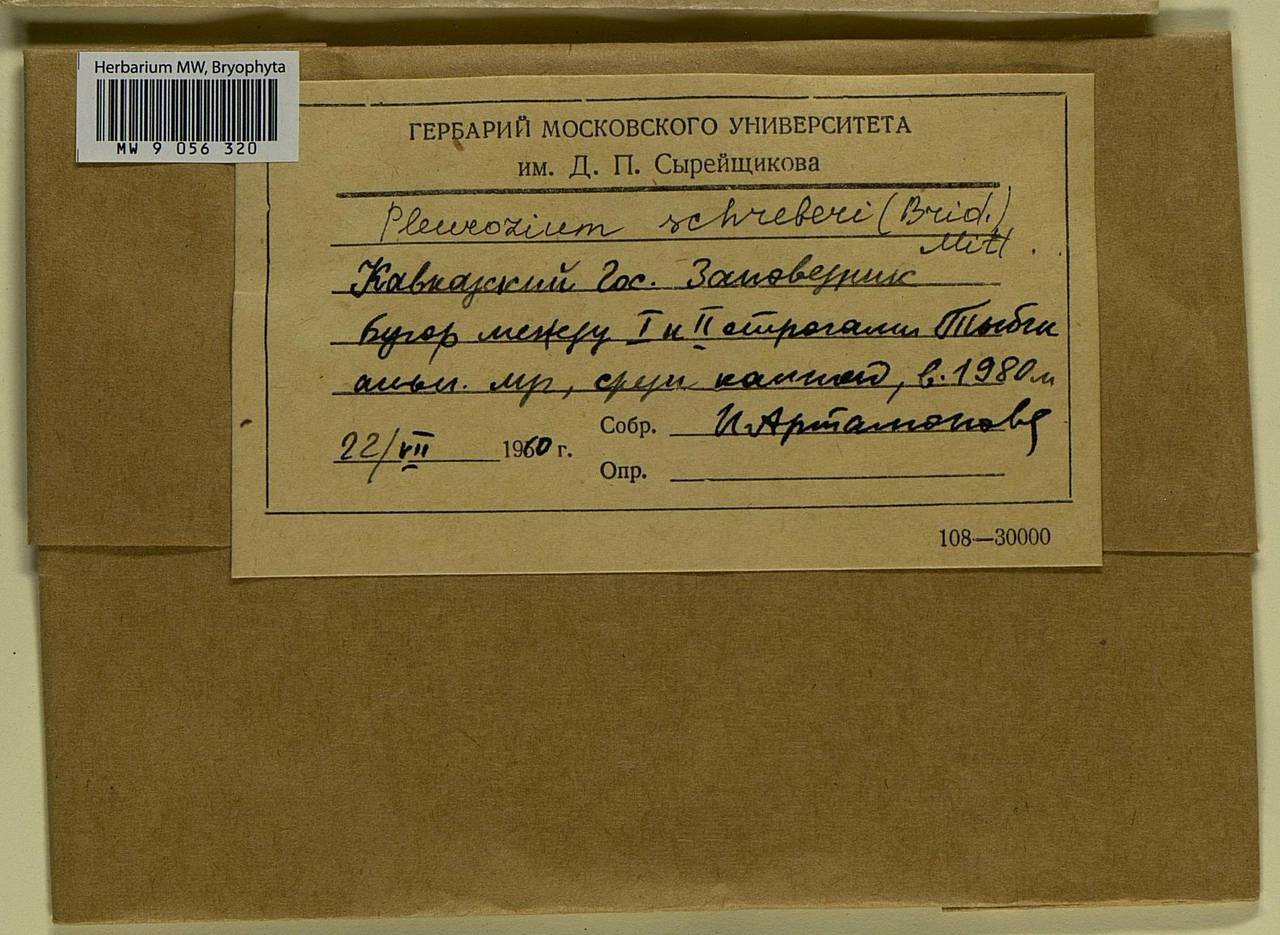 Herbarium MW, Bryophyta
MW 9 056 320
ГЕРБАРИЙ МОСКОВСКОГО УНИВЕРСИТЕТА
им. Д. П. Сырейщикова
Pleurozium schreberi (Brid.)
Mitt.
Кавказский Гос. Заповедник
Бугор между I и II отрогами Тыбги
альп. луг, среди камней, в. 1980 м
22/VII 1960 г.
Собр. И. Артамонова
Опр.
108—30000